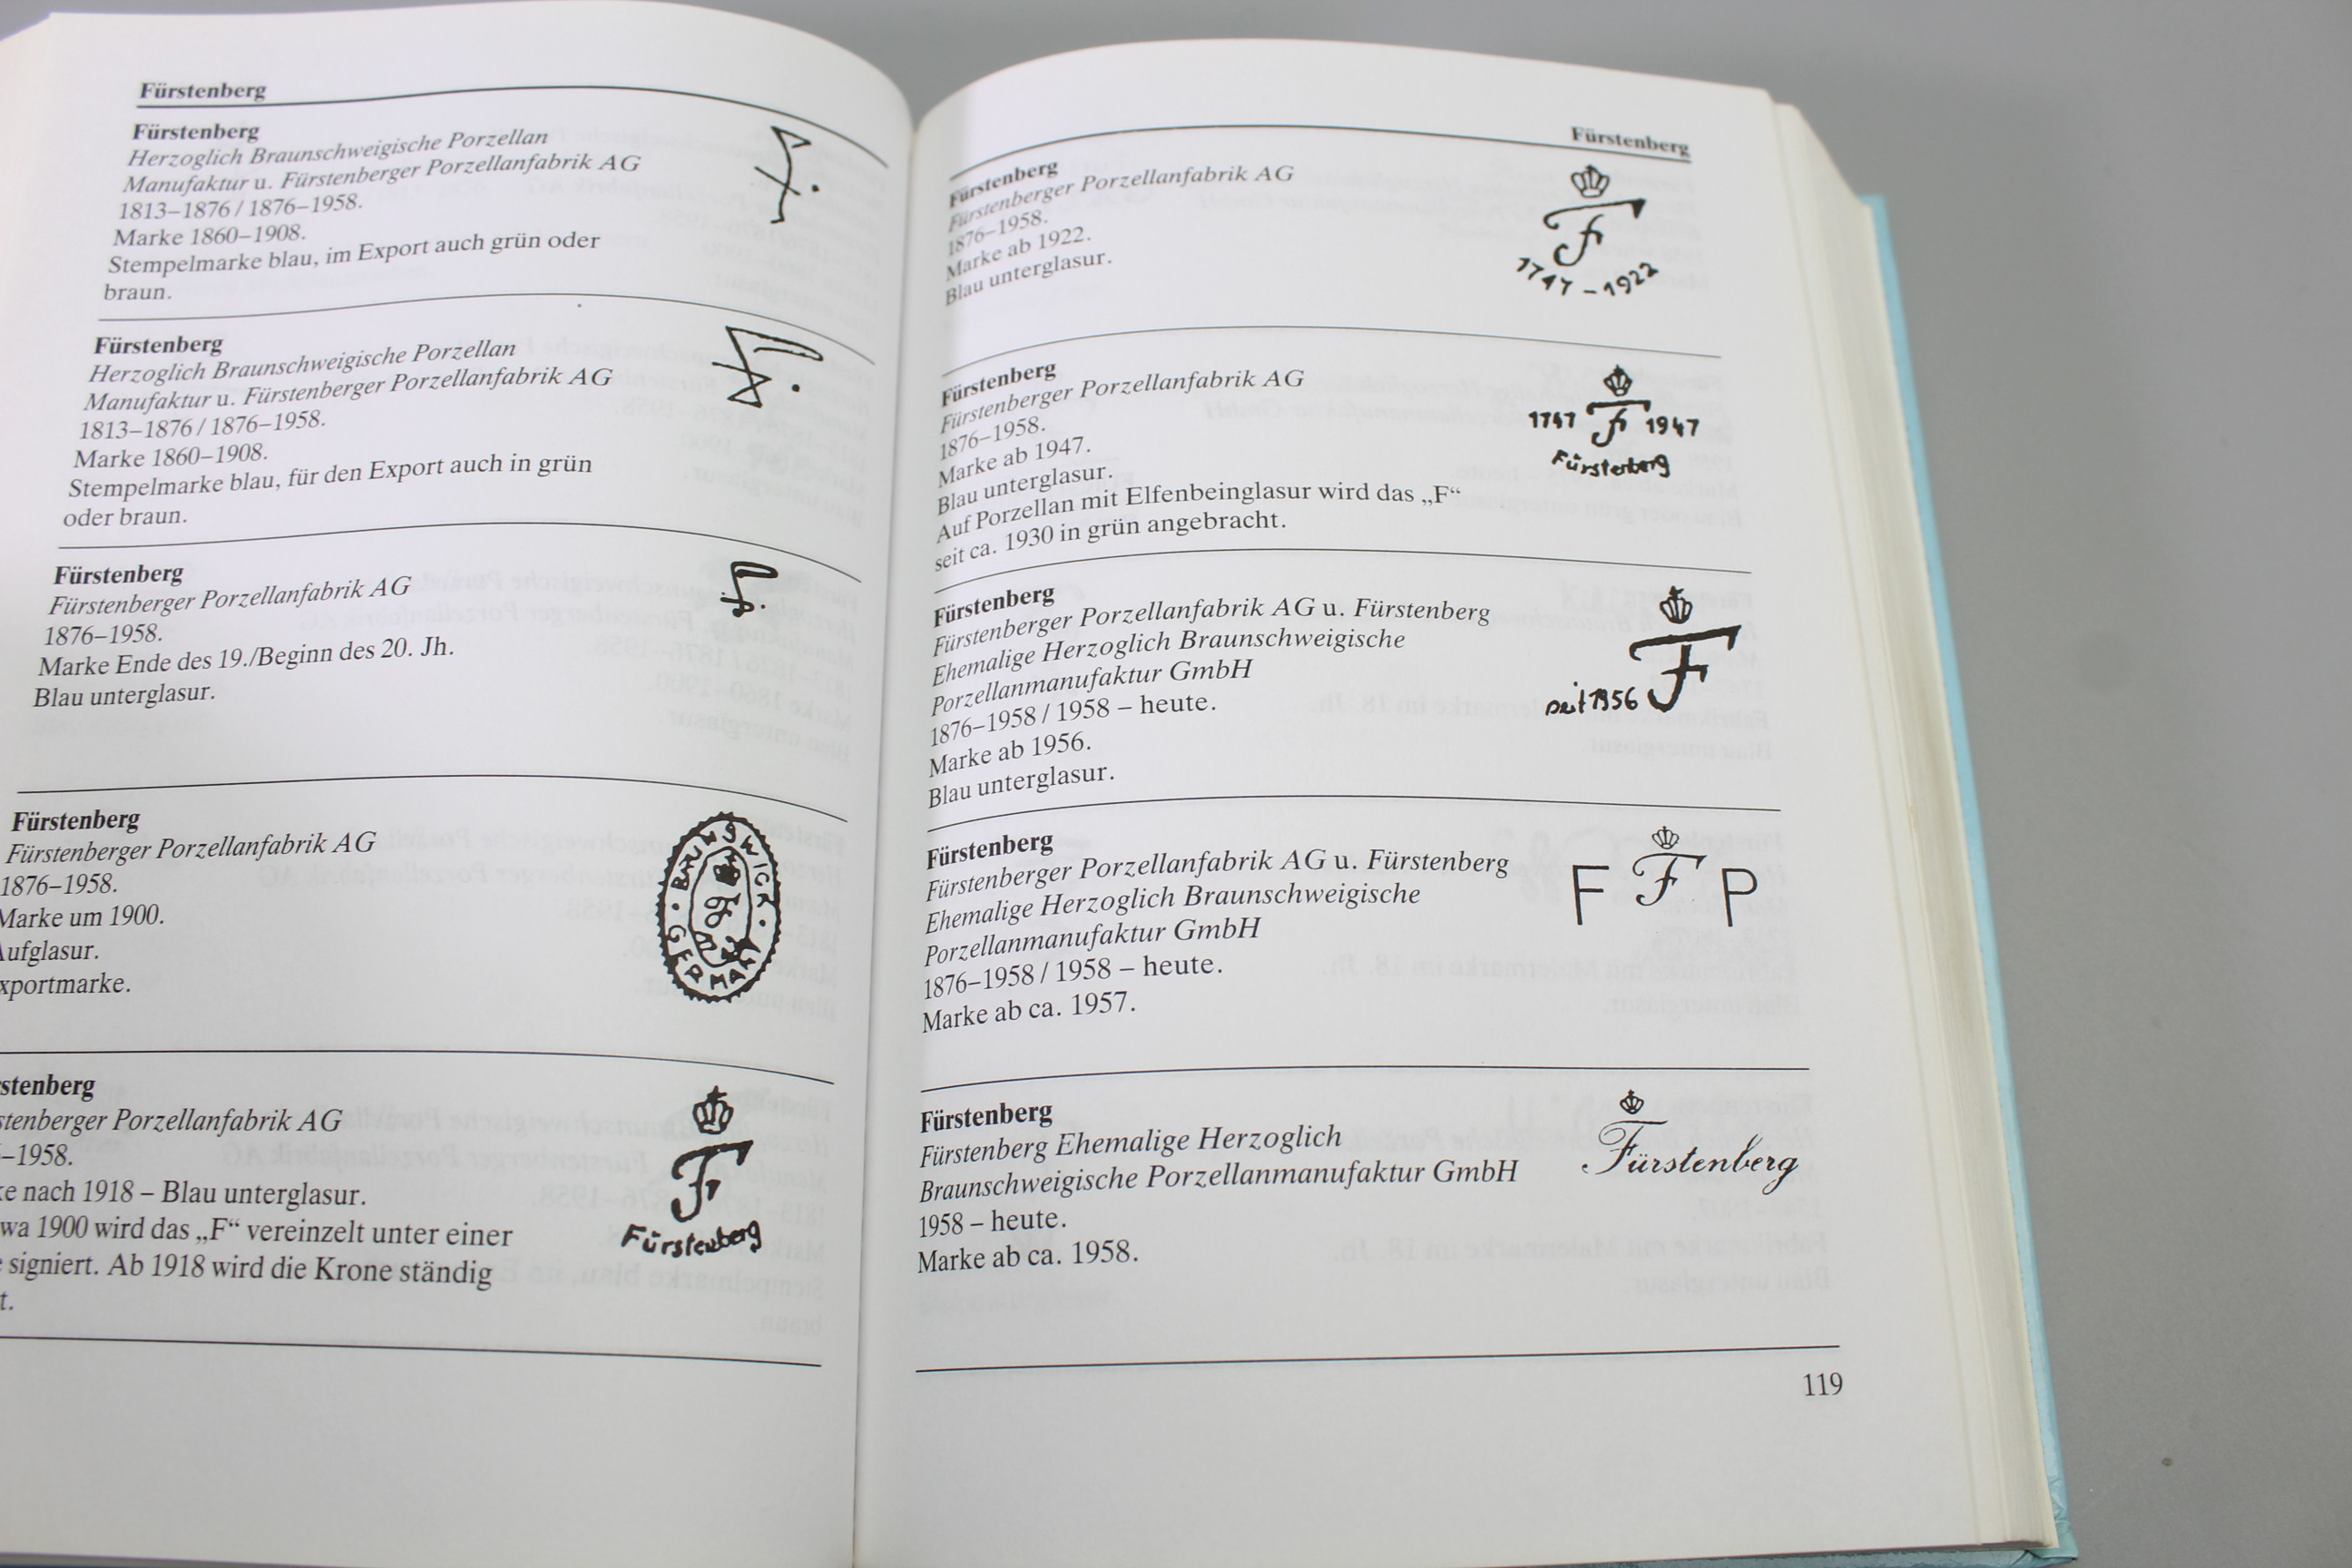 Fürstenberg
Fürstenberg
Herzoglich Braunschweigische Porzellan
Manufaktur u. Fürstenberger Porzellanfabrik AG
1813–1876 / 1876–1958.
Marke 1860–1908.
Stempelmarke blau, im Export auch grün oder
braun.
Fürstenberg
Herzoglich Braunschweigische Porzellan
Manufaktur u. Fürstenberger Porzellanfabrik AG
1813–1876 / 1876–1958.
Marke 1860–1908.
Stempelmarke blau, für den Export auch in grün
oder braun.
Fürstenberg
Fürstenberger Porzellanfabrik AG
1876–1958.
Marke Ende des 19./Beginn des 20. Jh.
Blau unterglasur.
Fürstenberg
Fürstenberger Porzellanfabrik AG
1876–1958.
Marke um 1900.
Aufglasur.
xportmarke.
BRUNSWICK · GERMANY ·
stenberg
stenberger Porzellanfabrik AG
–1958.
ke nach 1918 – Blau unterglasur.
wa 1900 wird das „F“ vereinzelt unter einer
signiert. Ab 1918 wird die Krone ständig
t.
F
Fürstenberg
Fürstenberg
Fürstenberg
Fürstenberger Porzellanfabrik AG
1876–1958.
Marke ab 1922.
Blau unterglasur.
F
1747 – 1922
Fürstenberg
Fürstenberger Porzellanfabrik AG
1876–1958.
Marke ab 1947.
Blau unterglasur.
Auf Porzellan mit Elfenbeinglasur wird das „F“
seit ca. 1930 in grün angebracht.
1747 F 1947
Fürstenberg
Fürstenberg
Fürstenberger Porzellanfabrik AG u. Fürstenberg
Ehemalige Herzoglich Braunschweigische
Porzellanmanufaktur GmbH
1876–1958 / 1958 – heute.
Marke ab 1956.
Blau unterglasur.
seit 1956 F
Fürstenberg
Fürstenberger Porzellanfabrik AG u. Fürstenberg
Ehemalige Herzoglich Braunschweigische
Porzellanmanufaktur GmbH
1876–1958 / 1958 – heute.
Marke ab ca. 1957.
F F P
Fürstenberg
Fürstenberg Ehemalige Herzoglich
Braunschweigische Porzellanmanufaktur GmbH
1958 – heute.
Marke ab ca. 1958.
Fürstenberg
119